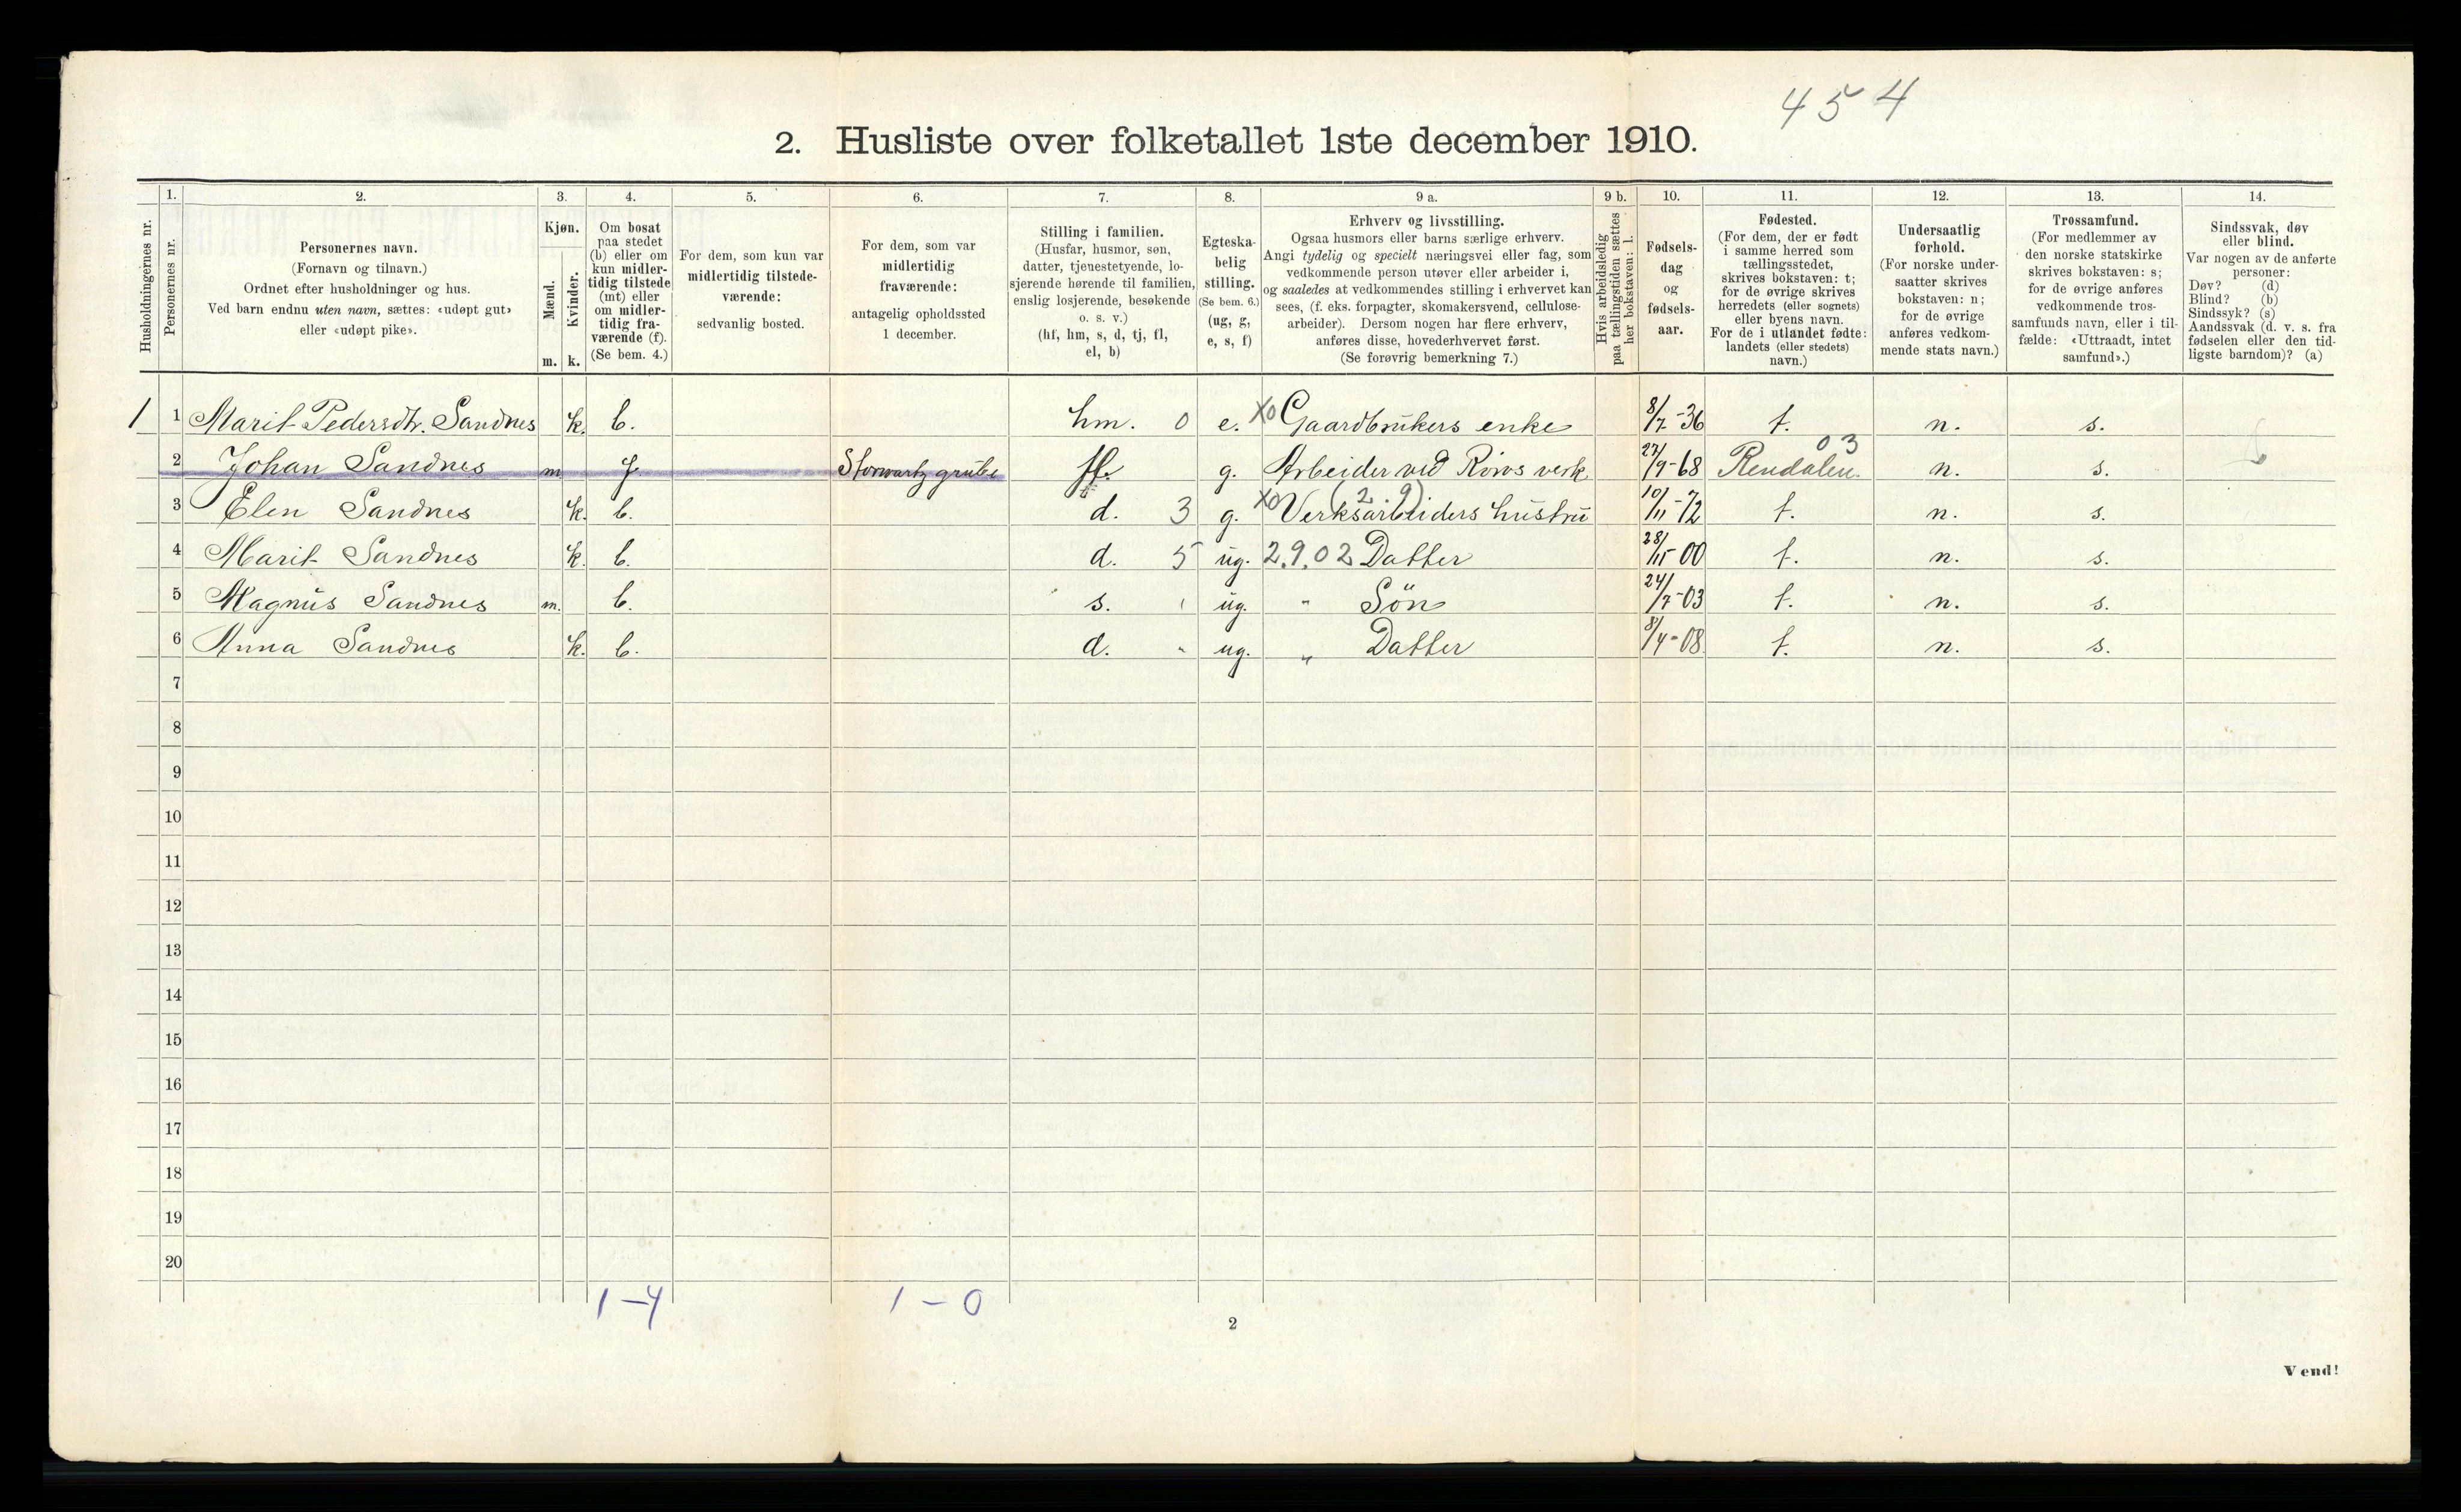 454
2. Husliste over folketallet 1ste december 1910.
Husholdningernes nr.
1.
Personernes nr.
2.
Personernes navn.
(Fornavn og tilnavn.)
Ordnet efter husholdninger og hus.
Ved barn endnu uten navn, sættes: «udøpt gut»
eller «udøpt pike».
3.
Kjøn.
Mænd.
Kvinder.
m. k.
4.
Om bosat
paa stedet
(b) eller om
kun midler-
tidig tilstede
(mt) eller
om midler-
tidig fra-
værende (f).
(Se bem. 4.)
5.
For dem, som kun var
midlertidig tilstede-
værende:
sedvanlig bosted.
6.
For dem, som var
midlertidig
fraværende:
antagelig opholdssted
1 december.
7.
Stilling i familien.
(Husfar, husmor, søn,
datter, tjenestetyende, lo-
sjerende hørende til familien,
enslig losjerende, besøkende
o. s. v.)
(hf, hm, s, d, tj, fl,
el, b)
8.
Egteska-
belig
stilling.
(Se bem. 6.)
(ug, g,
e, s, f)
9 a.
Erhverv og livsstilling.
Ogsaa husmors eller barns særlige erhverv.
Angi tydelig og specielt næringsvei eller fag, som
vedkommende person utøver eller arbeider i,
og saaledes at vedkommendes stilling i erhvervet kan
sees, (f. eks. forpagter, skomakersvend, cellulose-
arbeider). Dersom nogen har flere erhverv,
anføres disse, hovederhvervet først.
(Se forøvrig bemerkning 7.)
9 b.
Hvis arbeidsledig
paa tællingstiden sættes
her bokstaven: l.
10.
Fødsels-
dag
og
fødsels-
aar.
11.
Fødested.
(For dem, der er født
i samme herred som
tællingsstedet,
skrives bokstaven: t;
for de øvrige skrives
herredets (eller sognets)
eller byens navn.
For de i utlandet fødte:
landets (eller stedets)
navn.)
12.
Undersaatlig
forhold.
(For norske under-
saatter skrives
bokstaven: n;
for de øvrige
anføres vedkom-
mende stats navn.)
13.
Trossamfund.
(For medlemmer av
den norske statskirke
skrives bokstaven: s;
for de øvrige anføres
vedkommende tros-
samfunds navn, eller i til-
fælde: «Uttraadt, intet
samfund».)
14.
Sindssvak, døv
eller blind.
Var nogen av de anførte
personer:
Døv? (d)
Blind? (b)
Sindssyk? (s)
Aandssvak (d. v. s. fra
fødselen eller den tid-
ligste barndom)? (a)
1 1 Marit Pedersdtr. Sandnes k. b. hm. 0 e. X0 Gaardbrukers enke 8/7-36 t. n. s.
2 Johan Sandnes m f. Storwartz grube g. Arbeider ved Røros verk 27/9-68 Rendalen 03 n. s.
3 Elen Sandnes k. b. d. 3 g. X0 Verksarbeiders hustru (2.9) 10/11-72 t. n. s.
4 Marit Sandnes k. b. d. 5 ug. 2.9.02 Datter 28/11-00 t. n. s.
5 Magnus Sandnes m. b. s. ug. " Søn 24/7-03 t. n. s.
6 Anna Sandnes k. b. d. " ug. " Datter 8/4-08 t. n. s.
7
8
9
10
11
12
13
14
15
16
17
18
19
20
1-4 1-0
2
Vend!